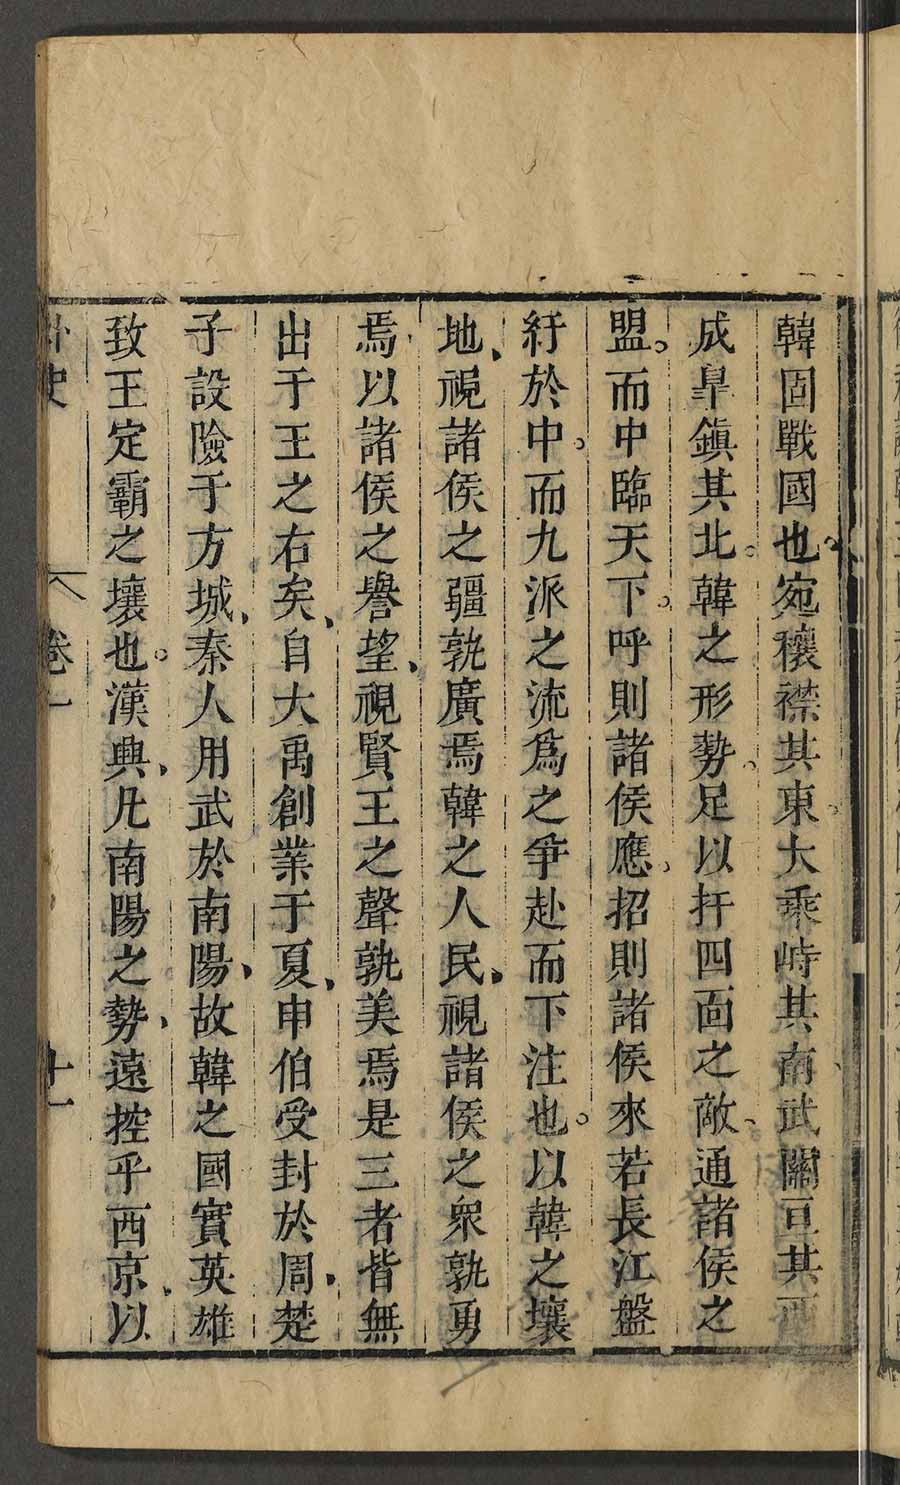 韓固戰國也宛穰襟其東大乘峙其南武關亘其西
成臯鎮其北。韓之形勢。足以扞四面之敵、通諸侯之
盟。而中臨天下。呼則諸侯應。招則諸侯來若長江盤
紆於中。而九派之流爲之爭赴而下注也。以韓之壤
地、視諸侯之疆孰廣焉韓之人民、視諸侯之衆孰勇
焉以諸侯之譽望、視賢王之聲孰美焉是三者皆無
出于王之右矣、自大禹創業于夏、申伯受封於周、楚
子設險于方城、秦人用武於南陽、故韓之國實英雄
致王定霸之壤也。漢興、凡南陽之勢、遠控乎西京、以
外史 卷一 十一